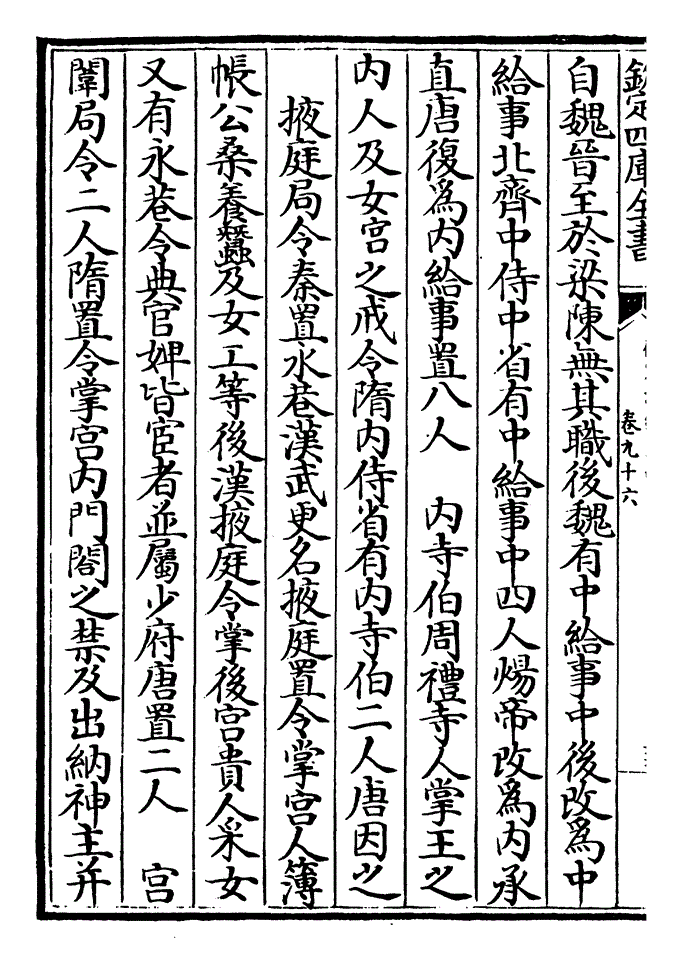 欽定四庫全書
卷九十六
自魏晉至於梁陳無其職後魏有中給事中後改為中
給事北齊中侍中省有中給事中四人煬帝改為内承
直唐復為内給事置八人　内寺伯周禮寺人掌王之
内人及女宫之戒令隋内侍省有内寺伯二人唐因之
掖庭局令秦置永巷漢武更名掖庭置令掌宫人簿
帳公桑養蠶及女工等後漢掖庭令掌後宫貴人采女
又有永巷令典官婢皆宦者並屬少府唐置二人　宫
闈局令二人隋置令掌宫内門閤之禁及出納神主并